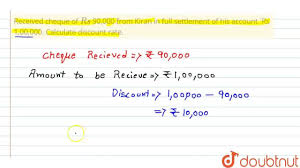 Received cheque of Rs 90.000 from Kiran in full settlement of his account. Rs
1,00,000. Calculate discount rate.
Cheque Recieved => ₹ 90,000
Amount to be Recieve => ₹ 1,00,000
Discount => 1,00,000 - 90,000
=> ₹ 10,000
doubtnut